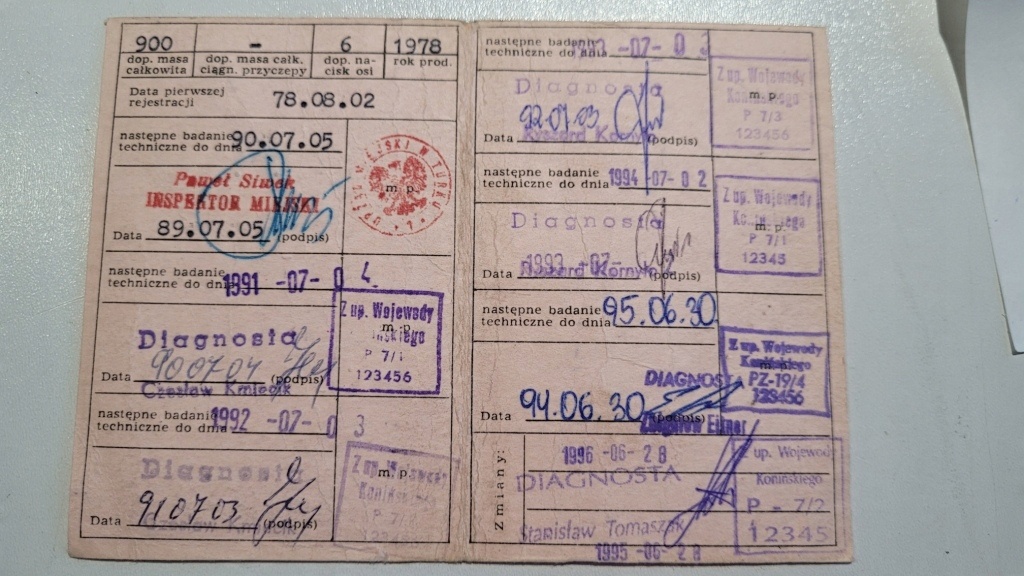 900 - 6 1978
dop. masa całkowita
dop. masa całk. ciągn. przyczepy
dop. nacisk osi
rok prod.
Data pierwszej rejestracji 78.08.02
następne badanie techniczne do dnia 90.07.05
Paweł Siwek
INSPEKTOR MIEJSKI
Data 89.07.05 (podpis)
URZĄD MIEJSKI W TURKU
m. p.
następne badanie techniczne do dnia 1991 -07- 0 4
Diagnosta
Data 900704 (podpis)
Czesław Kmiecik
Z up. Wojewody
m. p.
P 7/1
123456
następne badanie techniczne do dnia 1992 -07- 0 3
Diagnosta
Data 910703 (podpis)
Z up. Wojewody
m. p.
Konińskiego
P 7/
następne badanie
techniczne do dnia -07- 0 3
Diagnosta
Data 92.07.03 (podpis)
Ryszard
Z up. Wojewody
m. p.
Konińskiego
P 7/3
123456
następne badanie
techniczne do dnia 1994 -07- 0 2
Diagnosta
Data 1993 -07- (podpis)
Ryszard
Z up. Wojewody
m. p.
Konińskiego
P 7/1
12345
następne badanie
techniczne do dnia 95.06.30.
DIAGNOSTA
Data 94.06.30 (podpis)
Zbigniew
Z up. Wojewody
Konińskiego
PZ-19/4
123456
Zmiany:
1996 -06- 2 8
DIAGNOSTA
Stanisław Tomaszak
1995 -06- 2 8
Z up. Wojewody
Konińskiego
P - 7/2
12345